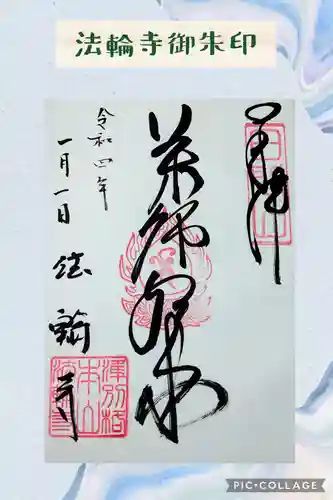 法輪寺御朱印
奉拝
薬師如来
令和四年
一月一日
法輪寺
PIC•COLLAGE